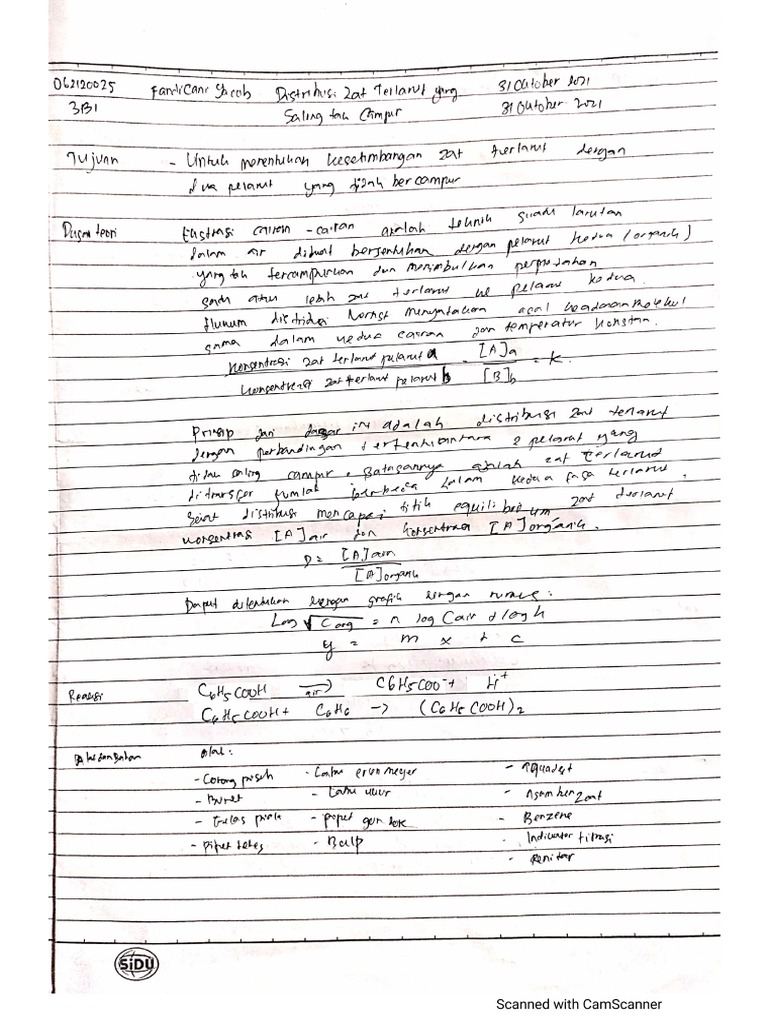 062120025 Distribusi Zat Terlarut yang 31 Oktober 2021
3B1 Saling tak Campur 31 Oktober 2021
Tujuan - Untuk menentukan kesetimbangan zat terlarut dengan
dua pelarut yang tidak bercampur
Dasar teori Ekstrasi cairan - cairan adalah teknik suatu larutan
dalam air dibuat bersentuhan dengan pelarut kedua (organik)
yang tak tercampurkan dan menimbulkan perpindahan
satu atau lebih zat terlarut ke pelarut kedua.
Hukum distribusi Nernst menyatakan keadaan molekul
sama dalam kedua cairan dan temperatur konstan.
Konsentrasi zat terlarut pelarut a = [A]a = k.
Konsentrasi zat terlarut pelarut b [B]b
Prinsip dari dasar ini adalah distribusi zat terlarut
dengan perbandingan tertentu antara 2 pelarut yang
tidak saling campur. Batasannya adalah zat terlarut
ditransfer jumlah berbeda dalam kedua fasa terlarut.
Saat distribusi mencapai titik equilibrium zat terlarut
konsentrasi [A]air dan konsentrasi [A]organik.
D = [A]air
[A]organik
Dapat ditentukan dengan grafik dengan rumus :
Log √Corg = n log Cair + log k
y = m x + c
Reaksi C6H5COOH →air C6H5COO- + H+
C6H5COOH + C6H6 -> (C6H5COOH)2
Alat dan Bahan Alat :
- Corong pisah - Labu erlenmeyer - Aquadest
- Buret - Labu ukur - Asam benzoat
- Gelas piala - pipet gondok - Benzene
- pipet tetes - Bulp - Indikator titrasi
-
SiDU
Scanned with CamScanner